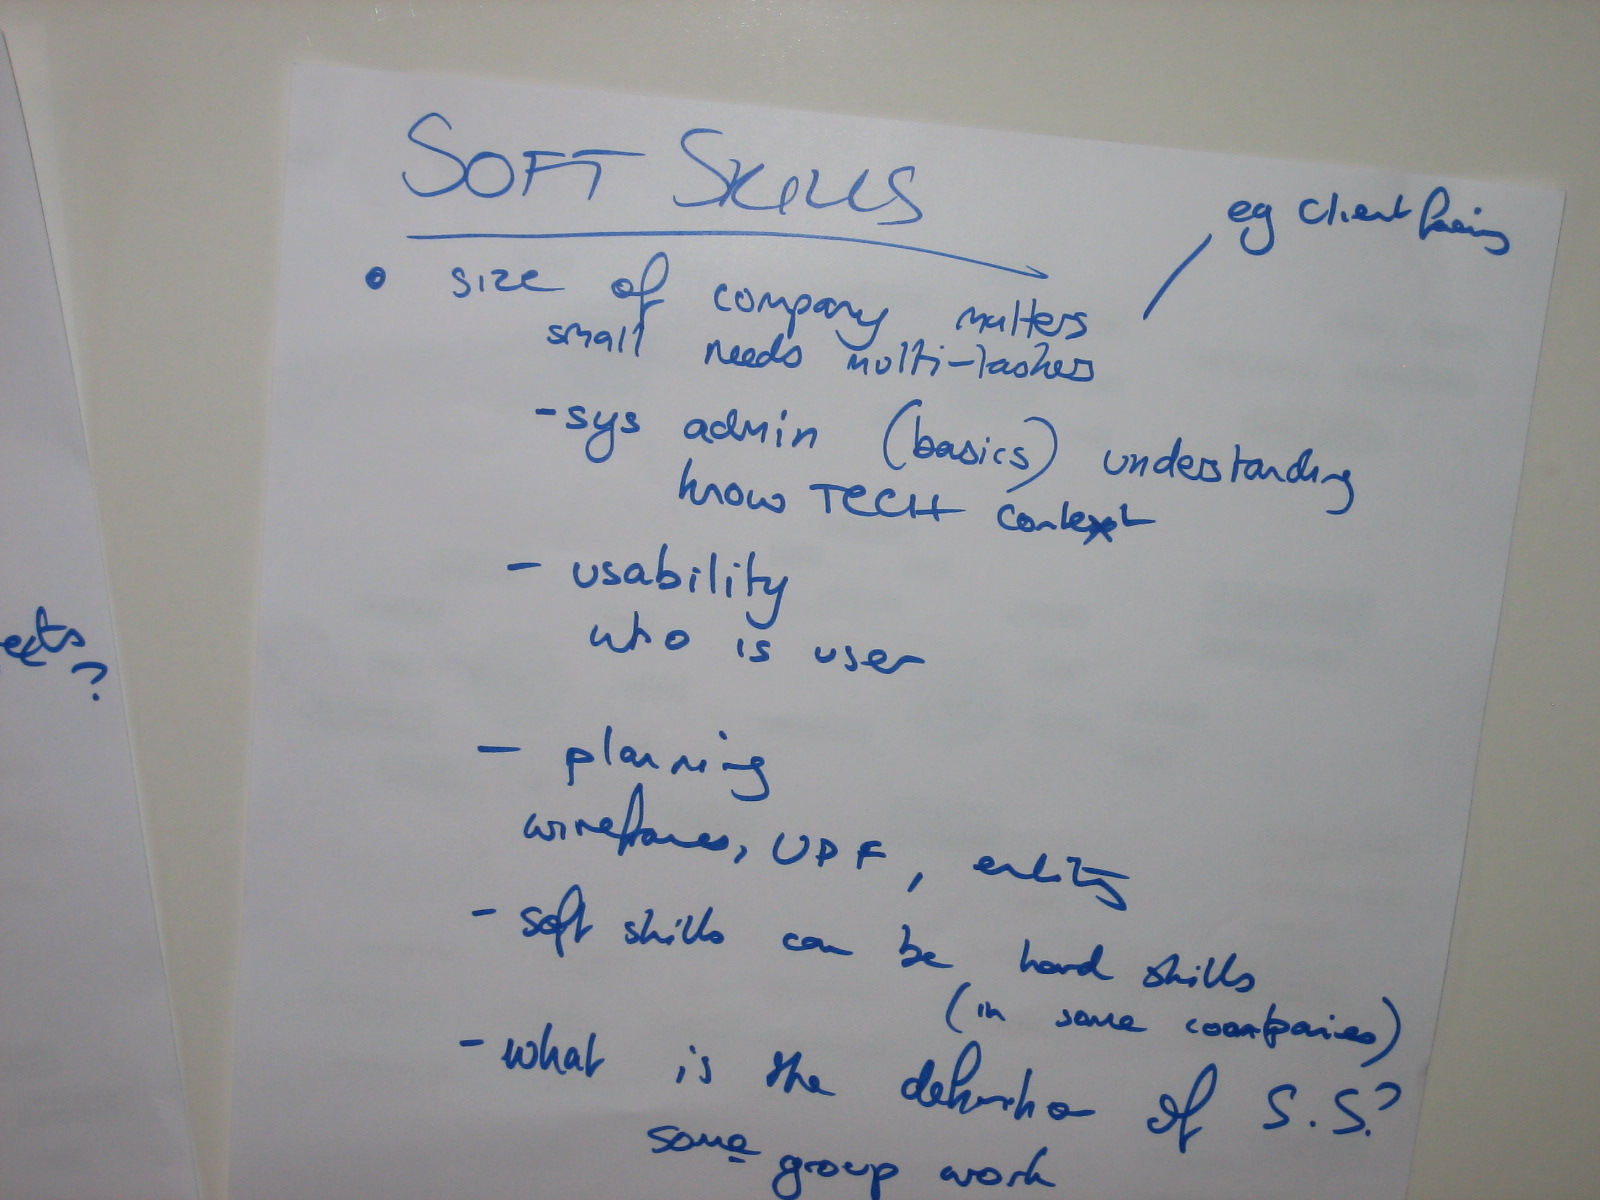 SOFT SKILLS
eg client facing
• size of company matters
small needs multi-taskers
- sys admin (basics) understanding
know TECH context
- usability
who is user
- planning
wireframes, UDF, entity
- soft skills can be hard skills
(in some companies)
- what is the definition of S.S.?
some group work
ects
?